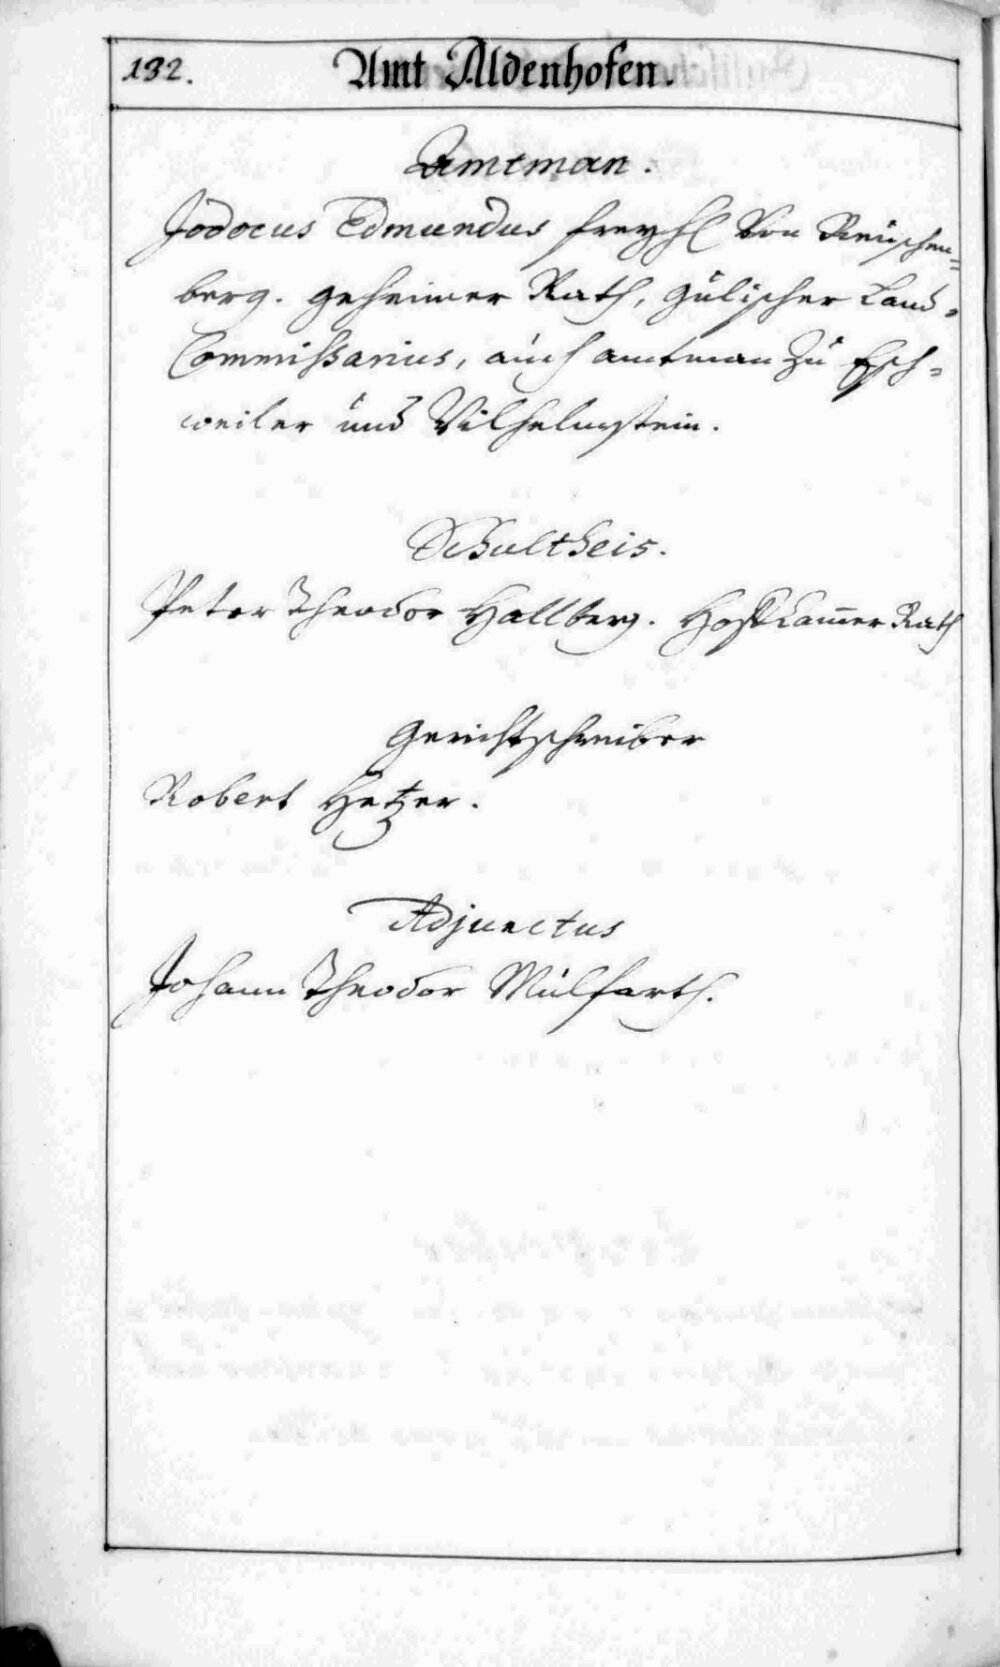 132.
Amt Aldenhofen.
Amtman.
Jodocus Edmundus freyh. Von Reuschen=
berg. geheimer Rath, gülischer Land=
Commissarius, auch amtman zu Esch=
weiler und Wilhelmstein.
Schultheis.
Peter Theodor Hallberg. Hoffkam̄er Rath
Gerichtschreiber
Robert Hetzer.
Adjunctus
Johann Theodor Mülfarth.